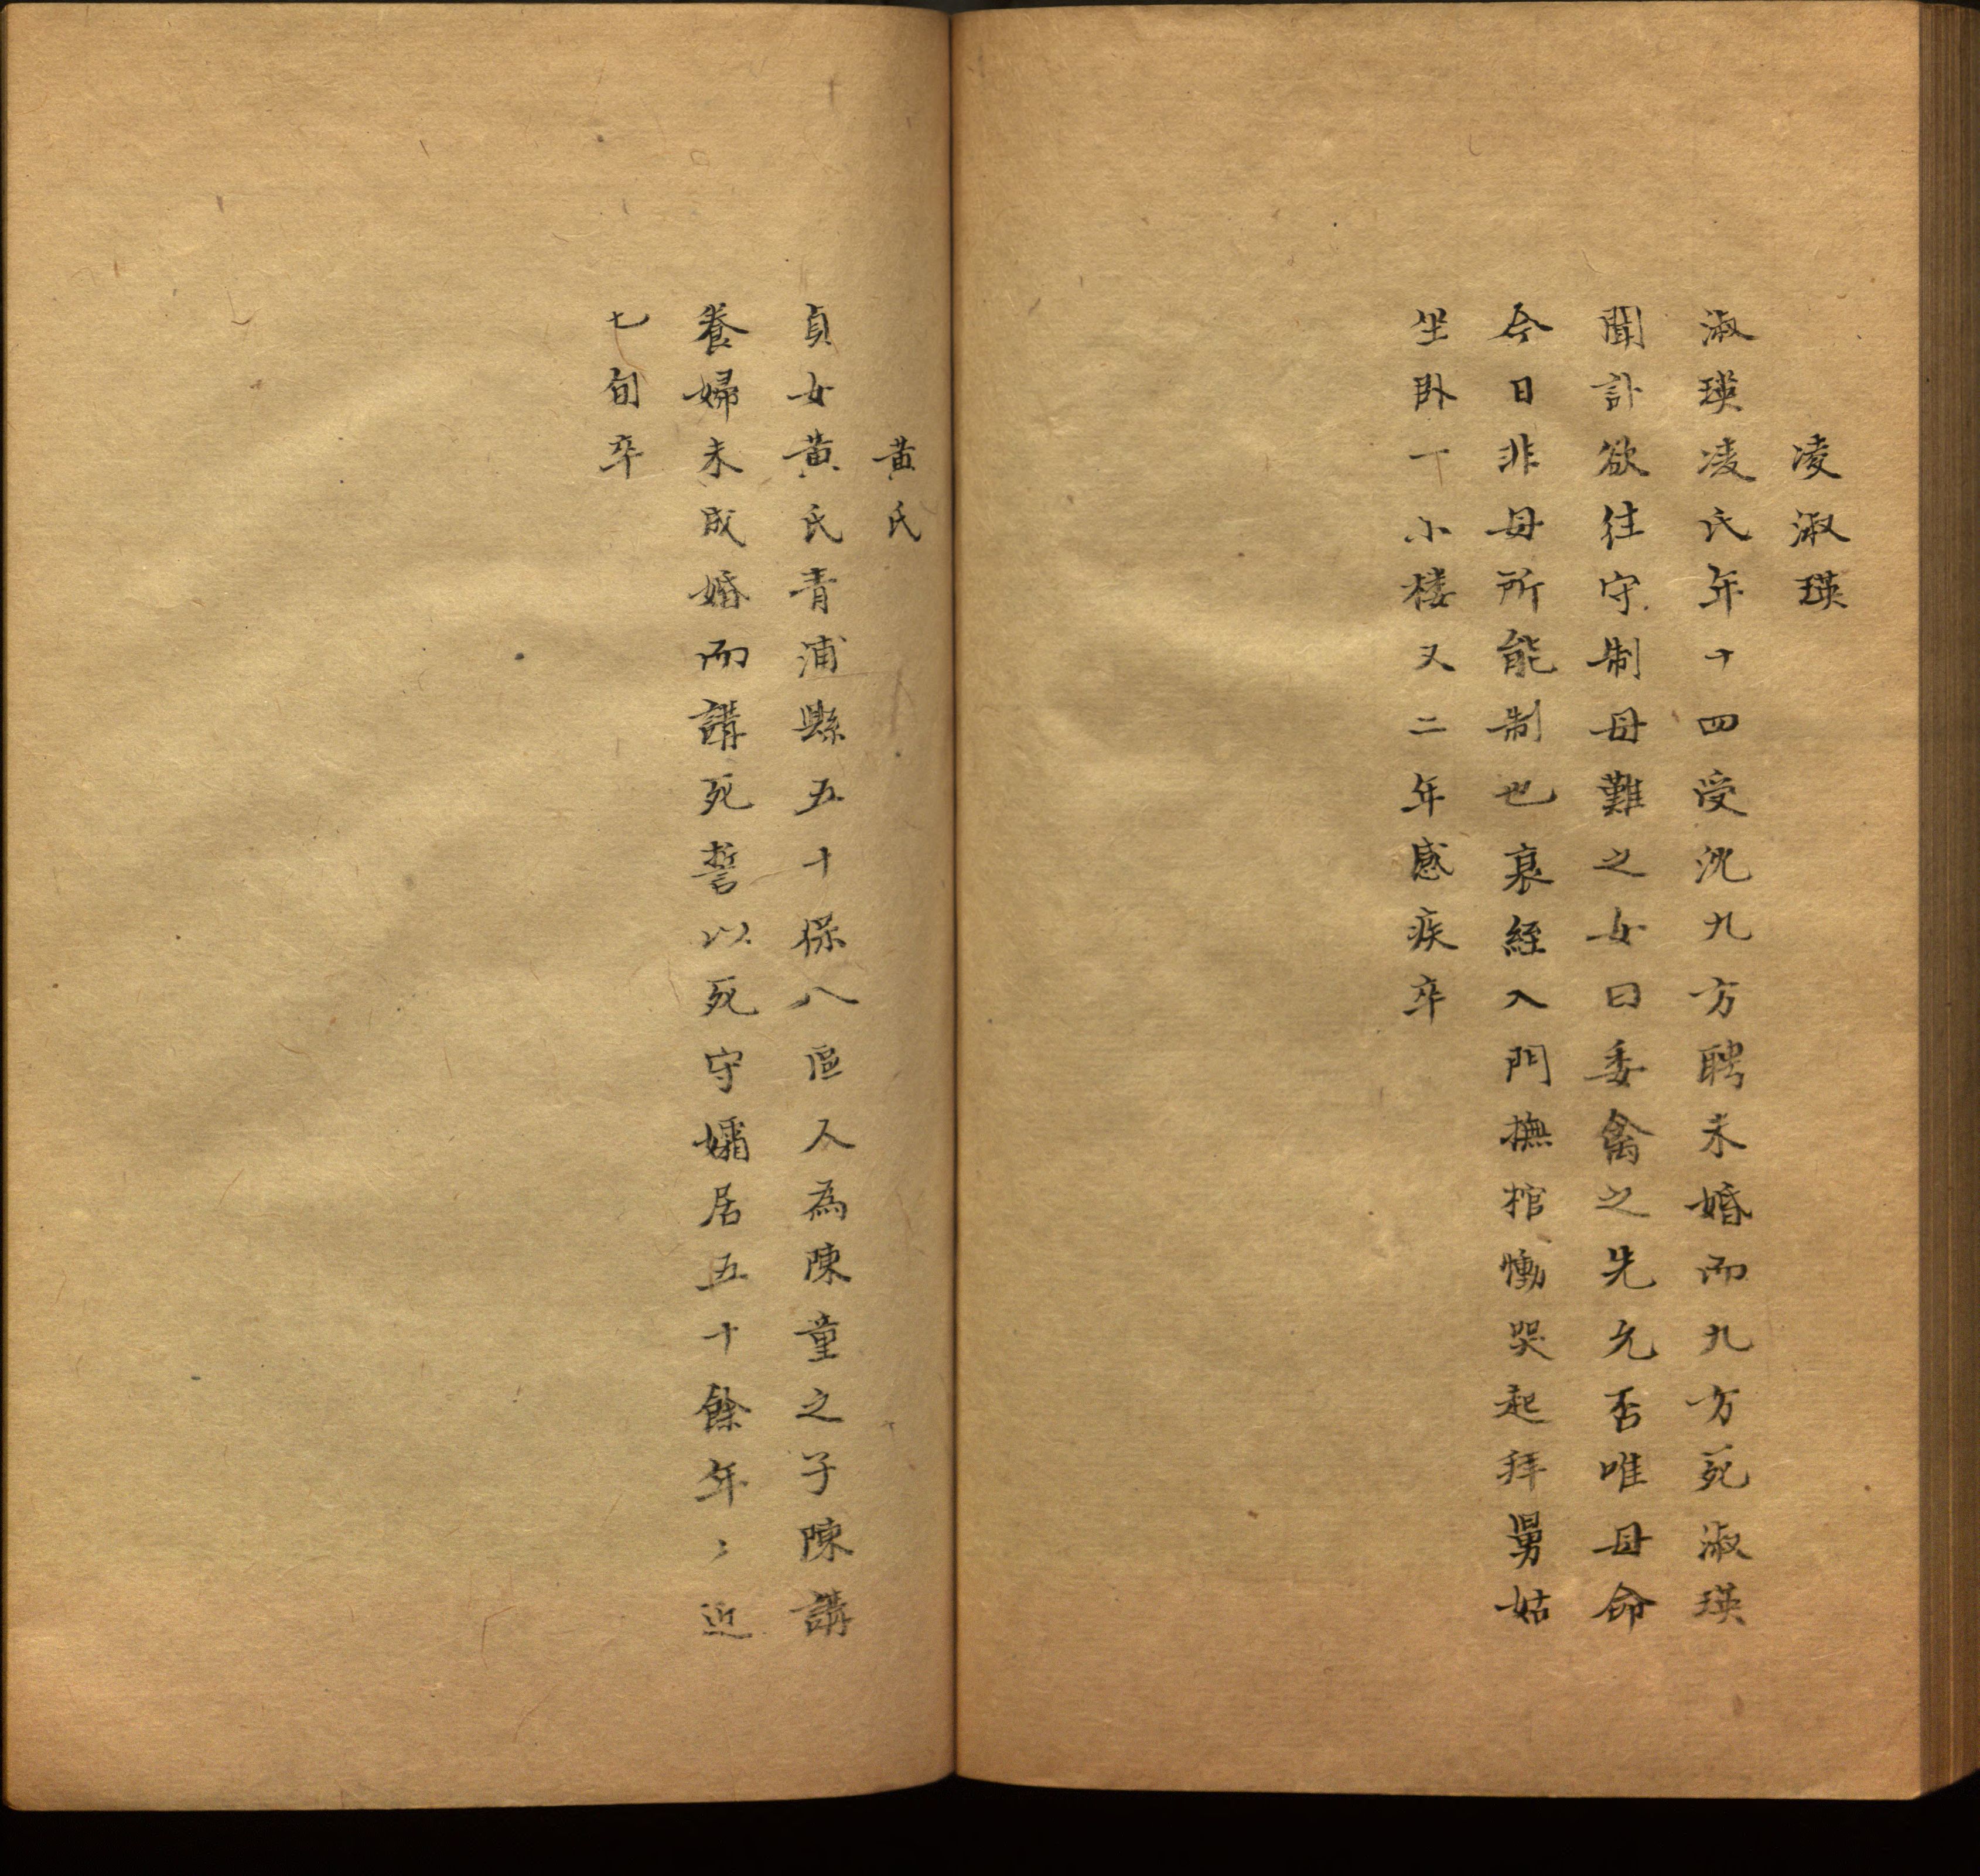 凌淑瑛
淑瑛凌氏年十四受沈九方聘未婚而九方死淑瑛
聞訃欲往守制母難之女曰委禽之先允否唯母命
今日非母所能制也衰絰入門撫棺慟哭起拜舅姑
坐卧一小樓又二年感疾卒
黃氏
貞女黃氏青浦縣五十保八區人為陳童之子陳講
養婦未成婚而講死誓以死守孀居五十餘年〻近
七旬卒